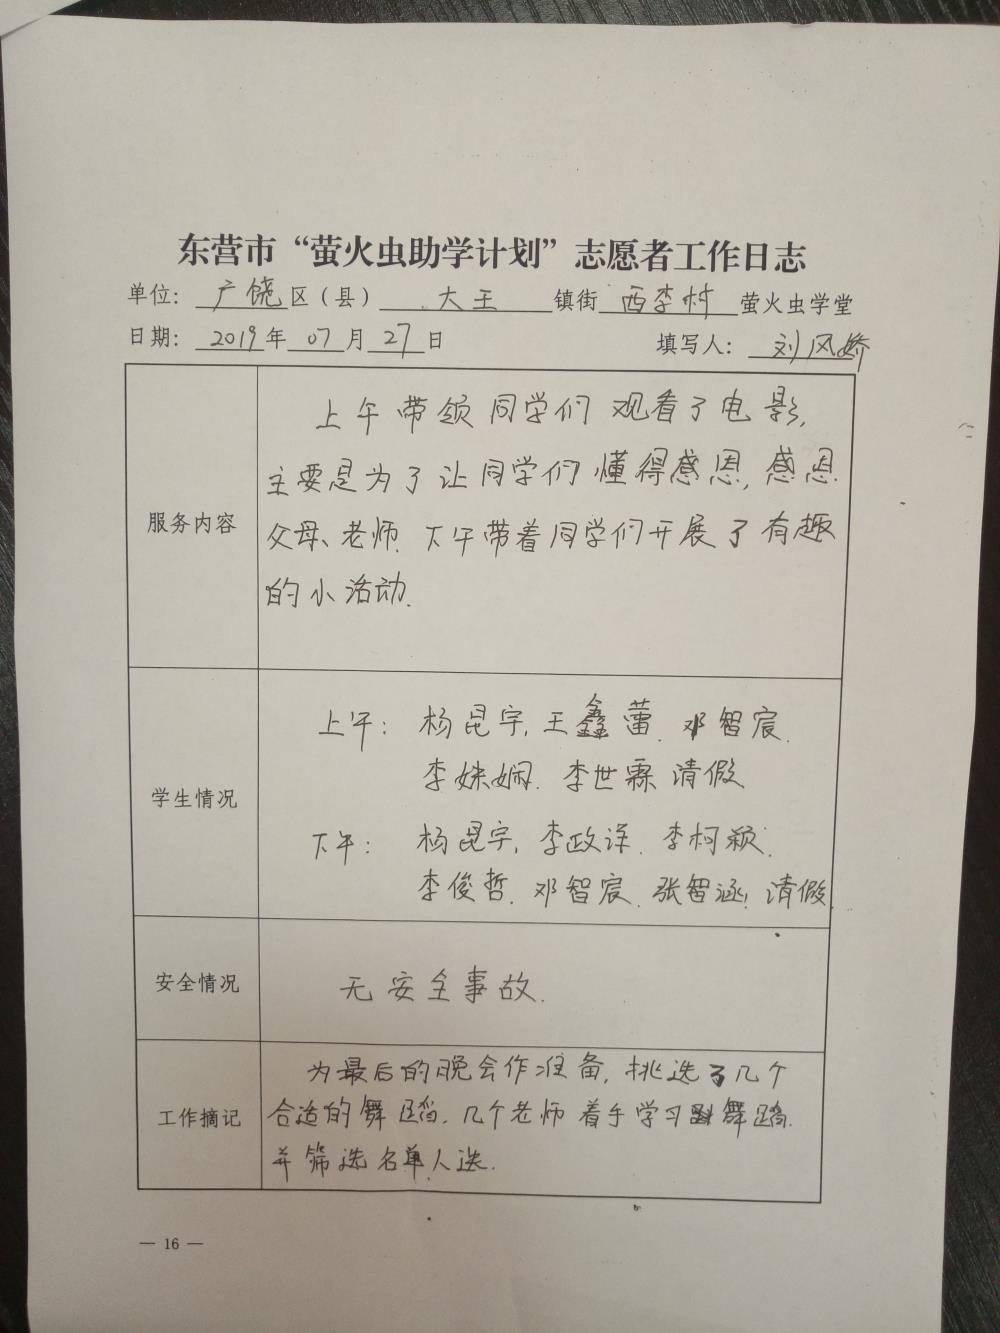 东营市“萤火虫助学计划”志愿者工作日志
单位：广饶区（县）大王镇街西李村萤火虫学堂
日期：2019年07月27日 填写人：刘风娇
服务内容
上午带领同学们观看了电影，
主要是为了让同学们懂得感恩，感恩
父母、老师．下午带着同学们开展了有趣
的小活动．
学生情况
上午：杨昆宇，王鑫蕾．邓智宸．
李姝娴．李世霖请假
下午：杨昆宇，李政洋．李柯颖．
李俊哲．邓智宸．张智涵．请假．
安全情况
无安全事故．
工作摘记
为最后的晚会作准备，挑选了几个
合适的舞蹈．几个老师着手学习舞蹈．
并筛选名单人选．
— 16 —